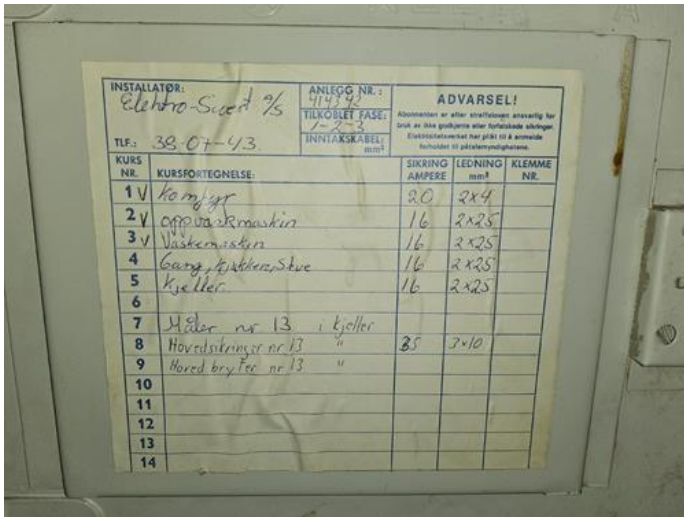 INSTALLATØR:
Elektro-Sivert a/s
TLF.: 38-07-43.
ANLEGG NR.:
414342
TILKOBLET FASE:
1-2-3
INNTAKSKABEL:
mm²
ADVARSEL!
Abonnenten er etter straffeloven ansvarlig for
bruk av ikke godkjente eller forfalskede sikringer.
Elektrisitetsverket har plikt til å anmelde
forholdet til påtalemyndighetene.
KURS NR. KURSFORTEGNELSE: SIKRING AMPERE LEDNING mm² KLEMME NR.
1 V Komfyr 20 2x4
2 V oppvaskmaskin 16 2x25
3 V Vaskemaskin 16 2x25
4 Gang, Kjøkken, Stue 16 2x25
5 Kjeller 16 2x25
6
7 Måler nr 13 i kjeller
8 Hovedsikringer nr 13 " 35 3x10
9 Hoved bryter nr 13 "
10
11
12
13
14